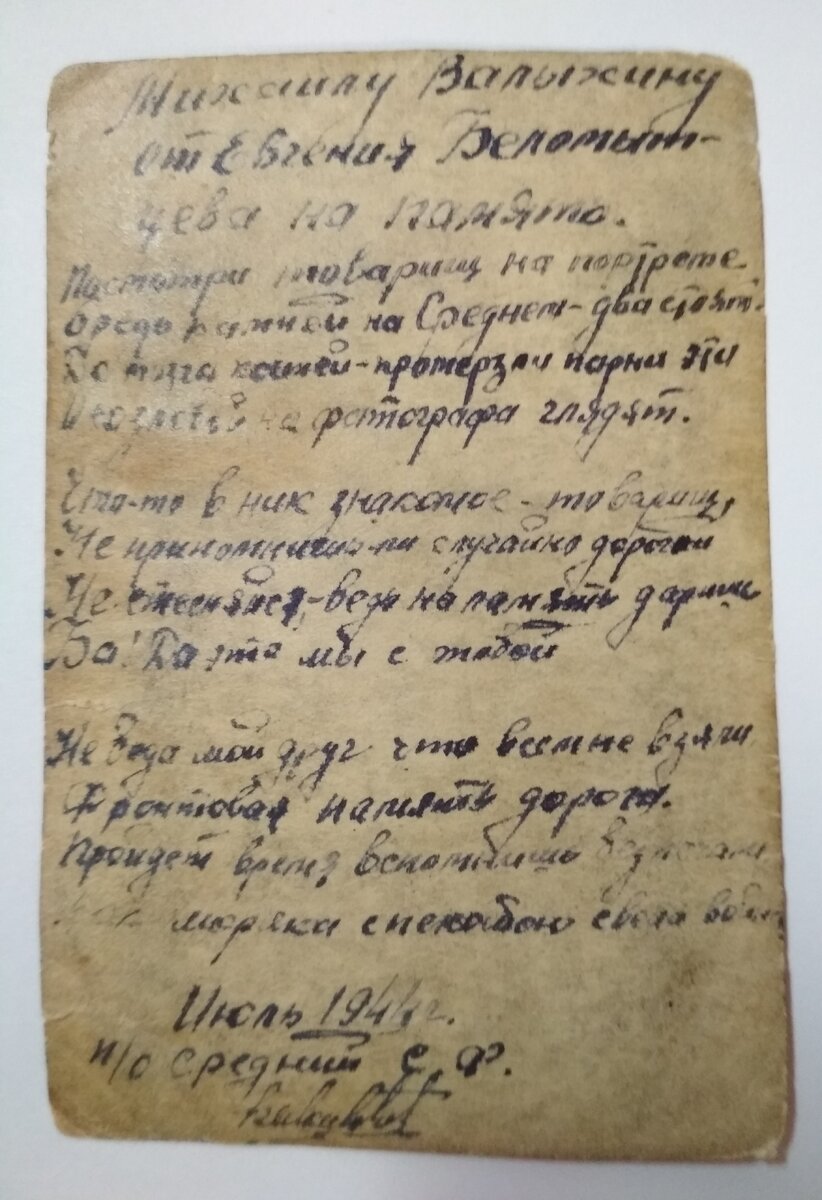 Михаилу Валыжину
от Евгения Беломыт-
цева на памято.
Посмотри товарищ на портрете
средь камней на Среднем - два стоят.
До мозга костей - промерзли парни эти
на фотографа глядят.
Что-то в них знакомое - товарищ,
Не припомнишь-ли случайно дорогой
Не стесняйся, - ведь на память даришь
Ба! Да это мы с тобой
Не беда мой друг что
Фронтовая память дорога.
Пройдет время вспомнишь
моряка с
Июль 1944 г.
п/о Средний С. Ф.